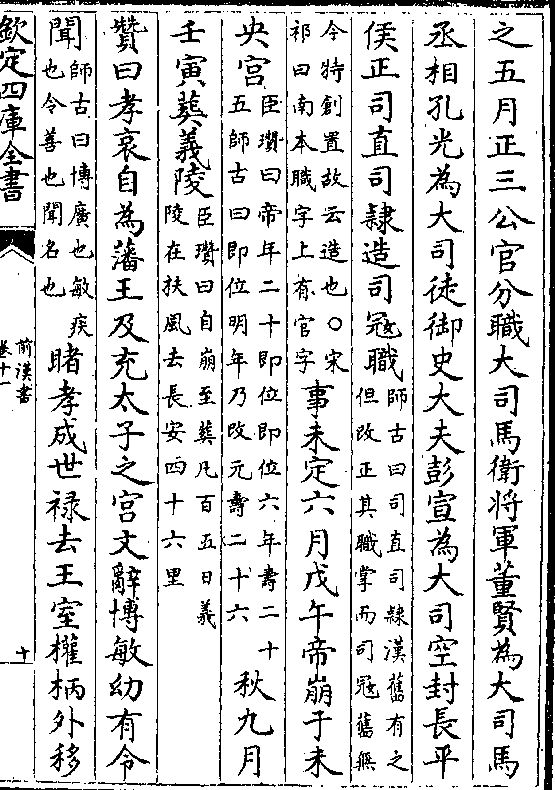 之五月正三公官分職大司馬衛将軍董賢為大司馬
丞相孔光為大司徒御史大夫彭宣為大司空封長平
侯正司直司隸造司冦職
師古曰司直司隸漢舊有之
但改正其職掌而司冦舊無
今特創置故云造也○宋
祁曰南本職字上有官字
事未定六月戊午帝崩于未
央宫
臣瓚曰帝年二十即位即位六年壽二十
五師古曰即位明年乃改元壽二十六
秋九月
壬寅葬義陵
臣瓚曰自崩至葬凡百五日義
陵在扶風去長安四十六里
贊曰孝哀自為藩王及充太子之宫文辭博敏幼有令
聞
師古曰博廣也敏疾
也令善也聞名也
睹孝成世禄去王室權柄外移
欽定四庫全書
前漢書
卷十一
十